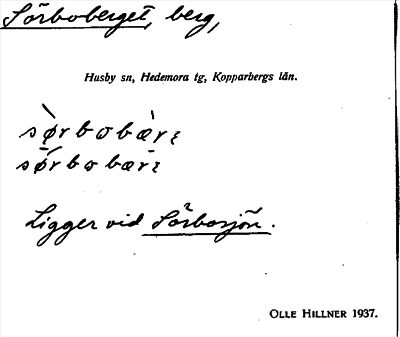 Sörboberget, berg,
Husby sn, Hedemora tg, Kopparbergs län.
sø̀rbωbæ̀rꝛ
sø̄́rbωbǣrꝛ
Ligger vid Sörbosjön.
OLLE HILLNER 1937.